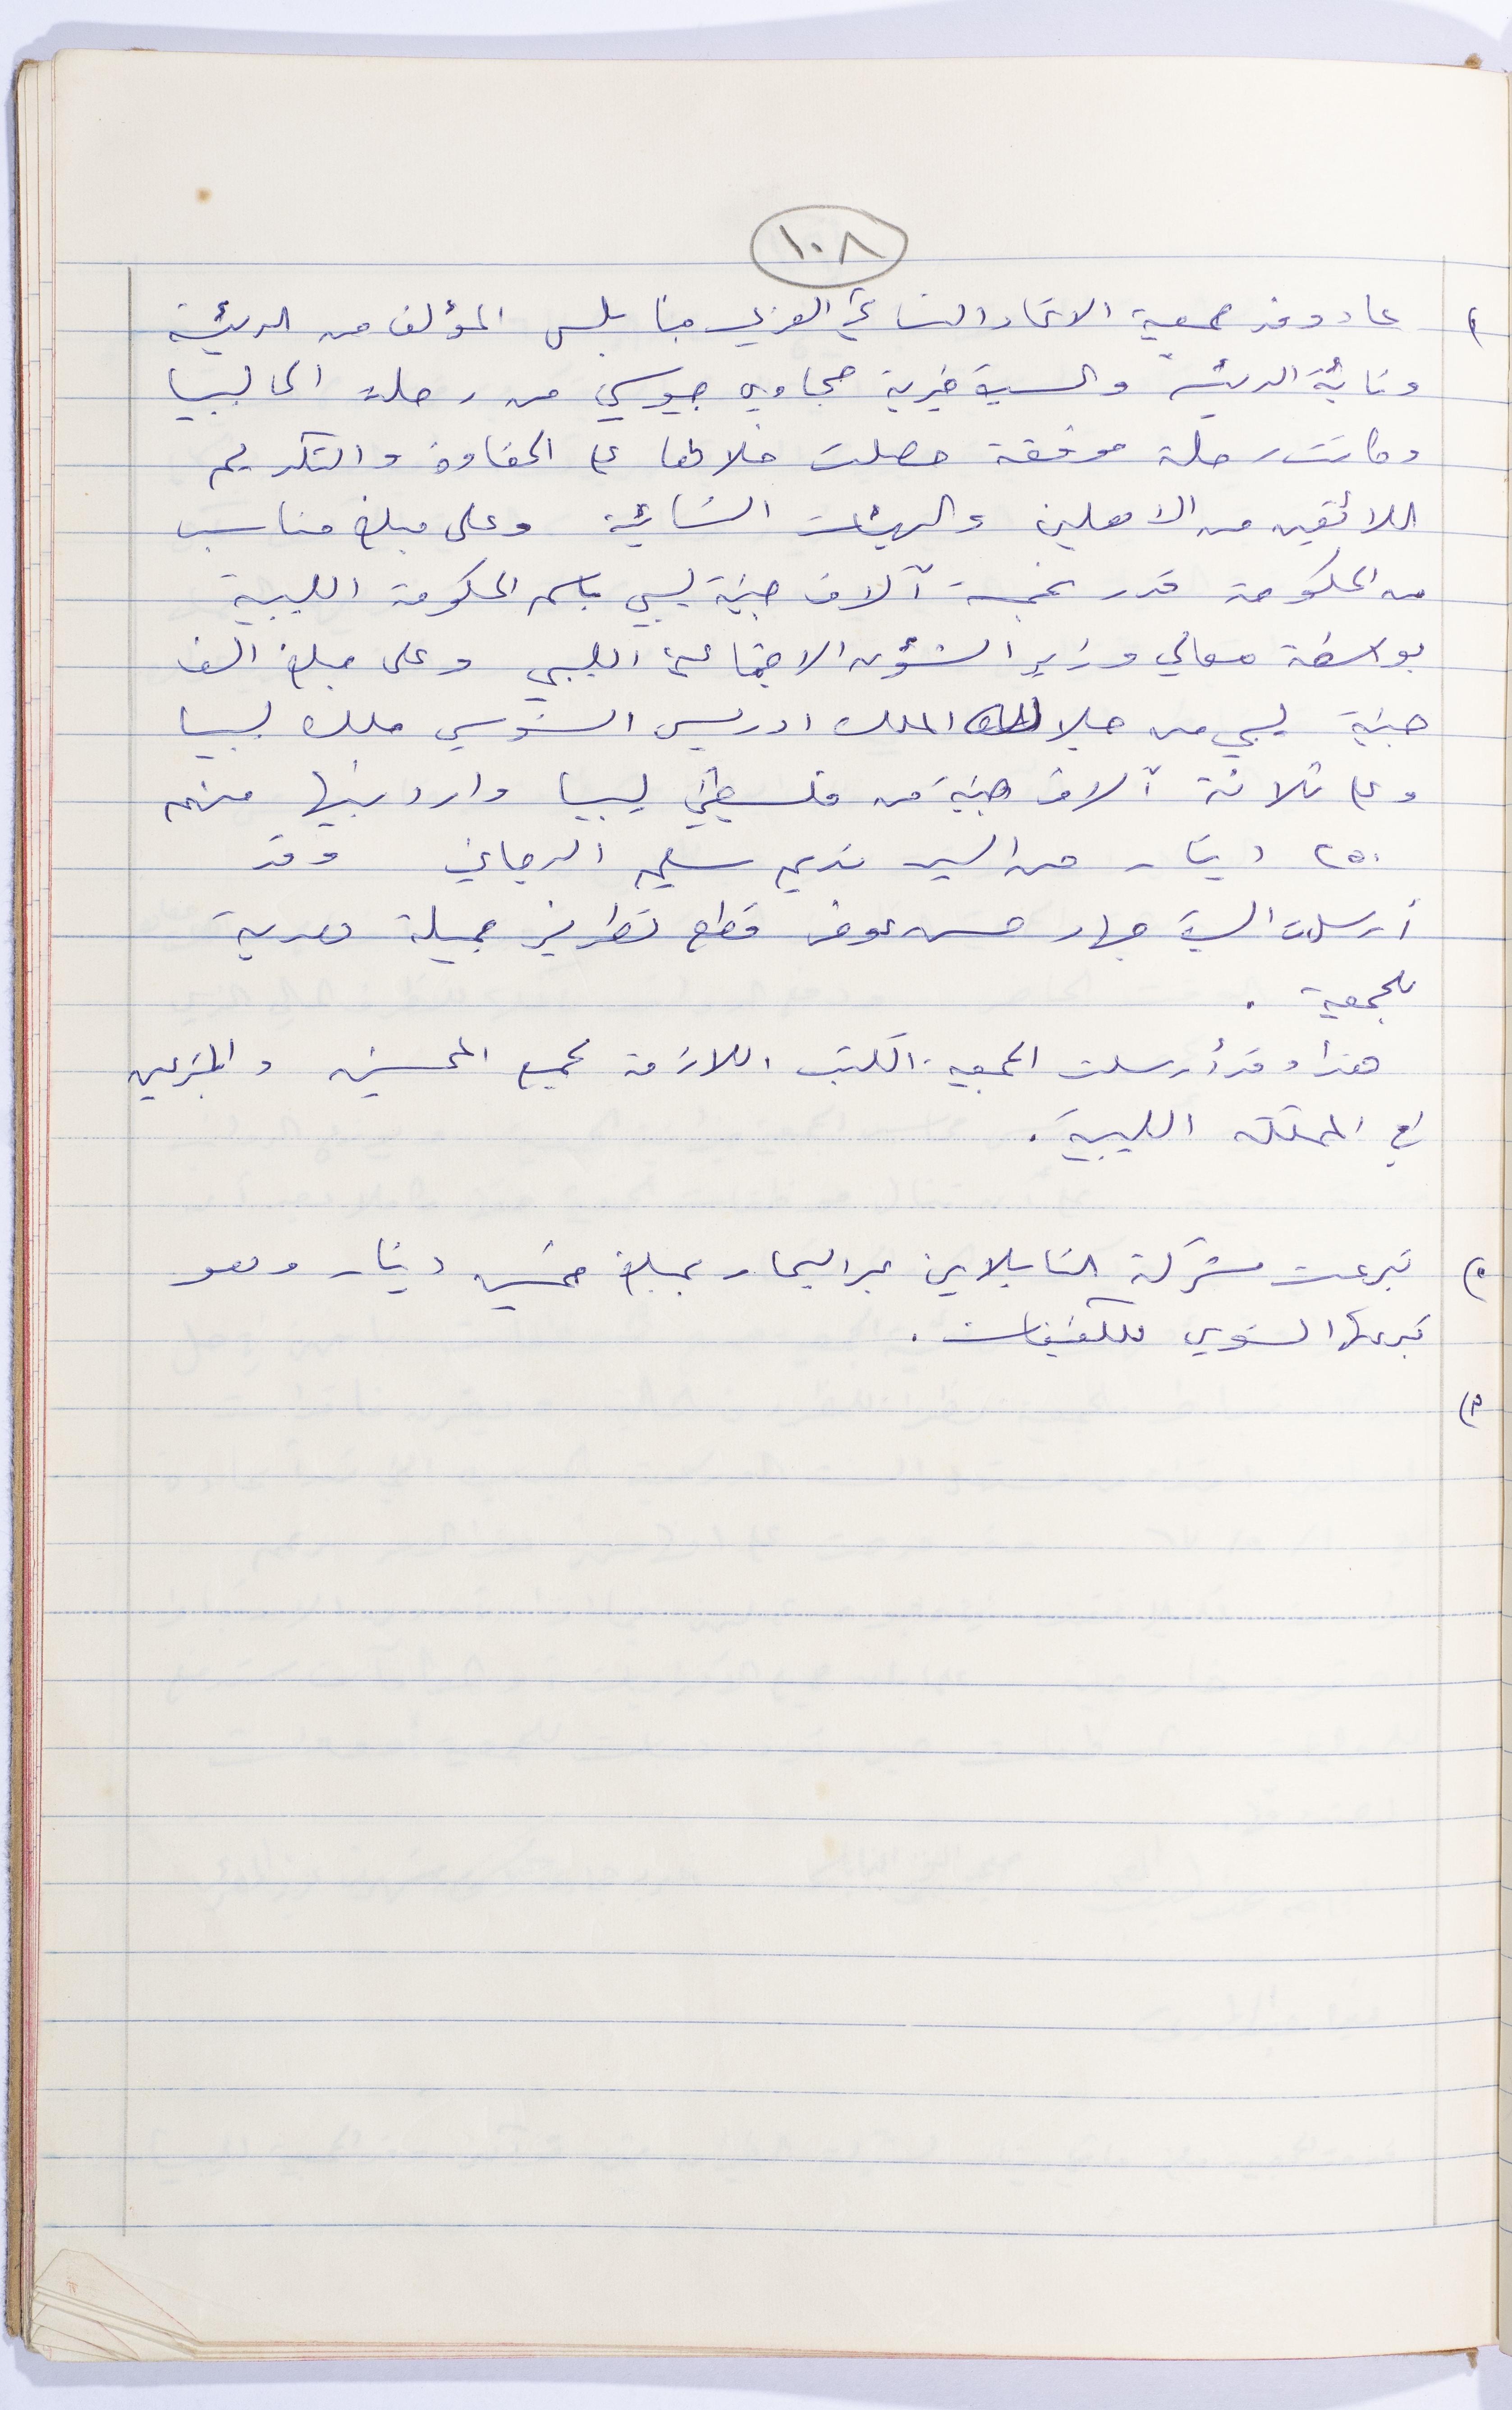 ١٠٨
١) عاد وفد جمعية الاتحاد النسائي العربي بنابلس المؤلف من الرئيسة
ونائبة الرئيسة والسيدة خيرية حجاوي جيوسي من رحلته الى ليبيا
وكانت رحلة موفقة حصلت خلالها على الحفاوة والتكريم
اللائقين من الاهلين والهيئات النسائية وعلى مبلغ مناسب
من الحكومة قدر بخمسة آلاف جنيه ليبي باسم الحكومة الليبية
بواسطة معالي وزير الشؤون الاجتماعية الليبي وعلى مبلغ الف
جنيه ليبي من جلالة الملك ادريس السنوسي ملك ليبيا
وعلى ثلاثة آلاف جنيه من فلسطينيي ليبيا واردنييها منهم
٢٥٠ دينار من السيد نديم سليم وقد
أرسلت السيدة جهاد حسن عوض قطع تطريز جميلة هدية
للجمعية .
هذا وقد أرسلت الجمعية الكتب اللازمة لجميع المحسنين والمتبرعين
في المملكة الليبية .
٢) تبرعت شركة التابلاين عبر البحار بمبلغ خمسين دينار وهو
تبرعها السنوي للكفيفات .
٣)